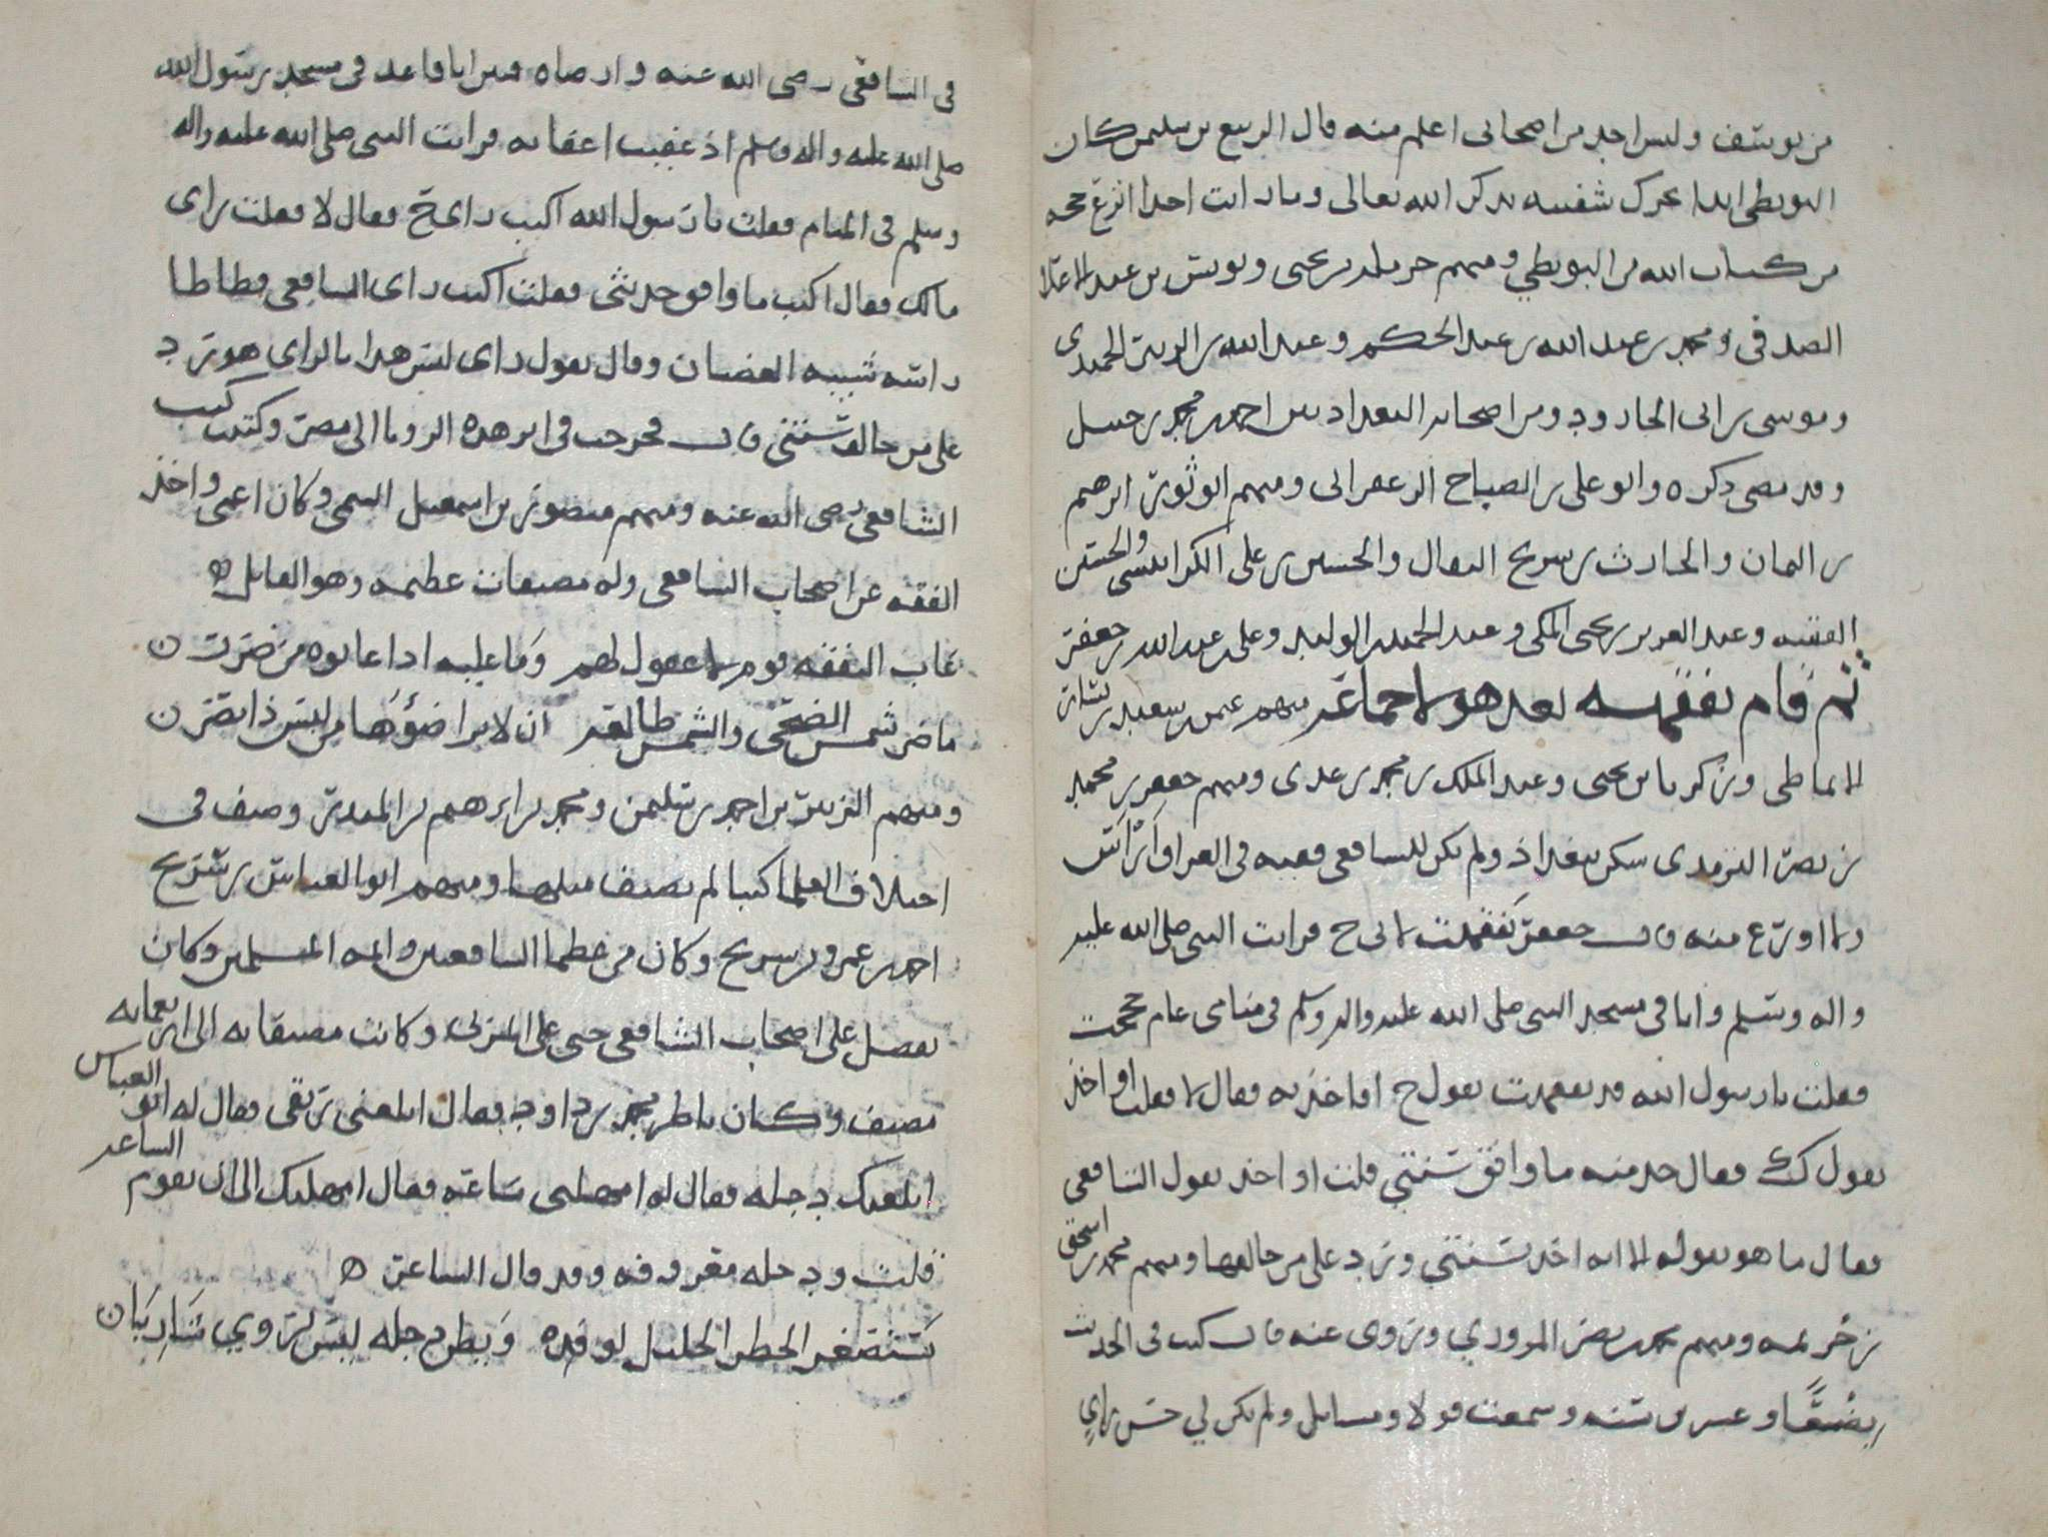 من يوسف وليس احد من اصحابى اعلم منه قال الربيع بن سليمن كان
البويطى ابدا يحرك شفتيه بذكر الله تعالى وما رايت احدا انزع بحجه
من كتاب الله من البويطي ومنهم حرمله بن يحيى ويونس بن عبد الاعلا
الصدفى ومحمد بن عبد الله بن عبد الحكم وعبد الله بن الزبير الحميدى
وموسى بن ابى الجارود ومن اصحابه البغداديين احمد بن محمد بن حنبل
وقد مضى ذكره وابو على بن الصباح الزعفرانى ومنهم ابو ثور ابرهيم
بن اليمان والحارث بن سريح النقال والحسين بن على الكرابيسى والحسين
الفقيه وعبد العزيز بن يحيى المكى وعبد الحميد بن الوليد وعلى بن عبد الله بن جعفر
ثم قام بفقهه بعد هولا جماعة منهم عثمن بن سعيد بن بشار
الانماطى وزكريا بن يحيى وعبد الملك بن محمد بن عدى ومنهم جعفر بن محمد
بن نصر الترمدى سكن ببغداذ ولم يكن للشافعى فقيه فى العراق اراس
ولا اورع منه قال جعفر تفقهت لابى ح فرايت النبى صلى الله عليه
واله وسلم وانا فى مسجد النبى صلى الله عليه واله وسلم فى منامى عام حججت
فقلت يا رسول الله قد تفقهت بقول ح افاخذ به فقال لا فقلت اواخذ
بقول ك فقال خذ منه ما وافق سنتي قلت او اخذ بقول الشافعى
فقال ما هو بقوله الا انه اخذ بسنتي ورد على من خالفها ومنهم محمد بن اسحق
بن خزيمه ومنهم محمد بن نصر المروزي وروى عنه قال كتبت فى الحديث
بضعًا وعشرين سنه وسمعت قولا ومسايل ولم يكن لي حسن راي
فى الشافعى رضى الله عنه وارضاه فبين انا قاعد فى مسجد رسول الله
صلى الله عليه واله وسلم اذ غفيت اغفاه فرايت النبى صلى الله عليه واله
وسلم فى المنام فقلت يا رسول الله اكتب راى ح فقال لا فقلت راى
مالك فقال اكتب ما وافق حديثى فقلت اكتب راى الشافعى فطاطا
راسه شبيه الغضبان وقال تقول راى ليس هذا بالراى هو رد
على من خالف سنتي قال فخرجت فى اثر هذه الرويا الى مصر وكتبت كتب
الشافعى رضى الله عنه ومنهم منصور بن اسمعيل التيمى وكان اعمى واخذ
الفقه عن اصحاب الشافعى وله مصنفات عظيمه وهو القايل
عاب التفقه قوم لا عقول لهم وما عليه اذا عابوه من ضرر
ما ضر شمس الضحى والشمس طالعه ان لا يرا ضوءها من ليس ذا بصر
ومنهم الزبير بن احمد بن سليمن ومحمد بن ابرهيم بن المنذر وصنف فى
اختلاف العلما كتبا لم يصنف مثلها ومنهم ابو العباس بن سريج
احمد بن عمرو بن سريج وكان من عظما الشافعيين وايمه المسلمين وكان
يفضل على اصحاب الشافعى حتى على المزنى وكانت مصنفاته الى اربعمايه
مصنف وكان يناظر محمد بن داود فقال ابلعنى ريقى فقال له ابو العباس
ابلعتك دجله فقال له امهلنى ساعة فقال امهلتك الى ان تقوم الساعه
قلت ودجله معروفه وقد قال الشاعر
تستصغر الخطر الجليل لوفده وبطن دجله ليس تروي شاربان